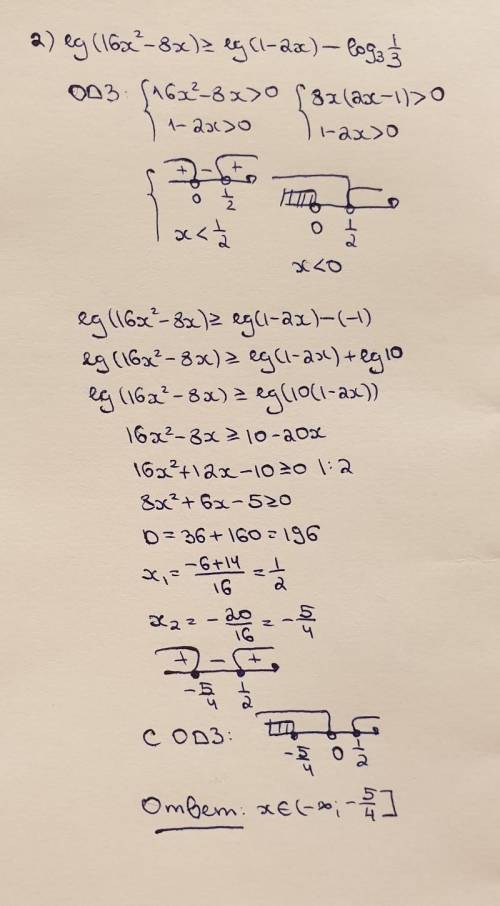 2) lg(16x²-8x)≥ lg(1-2x) - log₃ 1/3
ОДЗ: { 16x²-8x>0 { 8x(2x-1)>0
1-2x>0 1-2x>0
+ - +
0 1/2
x < 1/2 0 1/2
x<0
lg(16x²-8x)≥ lg(1-2x)-(-1)
lg(16x²-8x) ≥ lg(1-2x)+lg10
lg(16x²-8x) ≥ lg(10(1-2x))
16x²-8x ≥ 10-20x
16x²+12x-10≥0 |:2
8x²+6x-5≥0
D = 36+160=196
x₁ = (-6+14)/16 = 1/2
x₂ = -20/16 = -5/4
+ - +
-5/4 1/2
С ОДЗ:
-5/4 0 1/2
Ответ: x∈(-∞; -5/4]